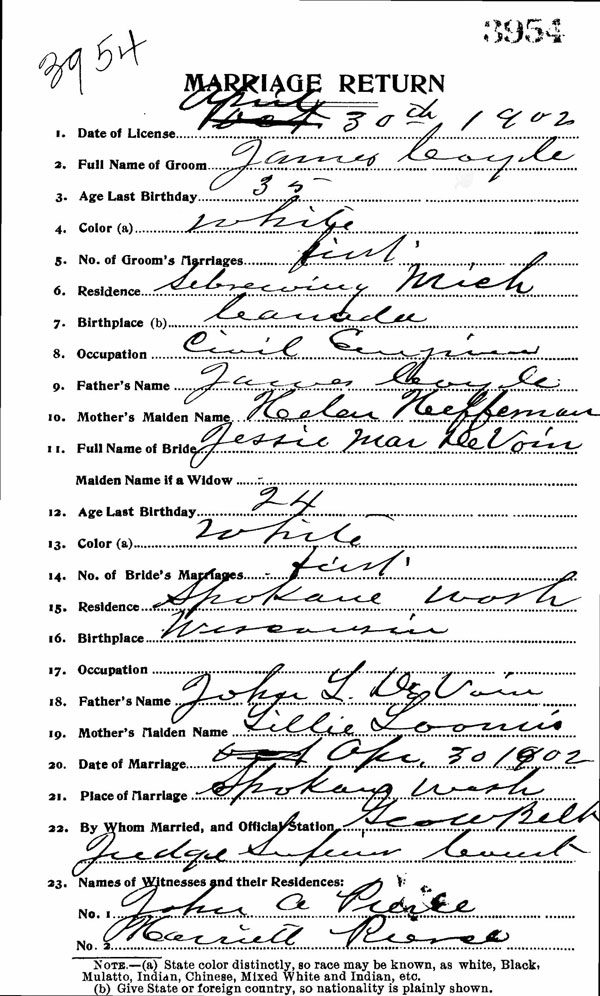 3954
3954
MARRIAGE RETURN
April
1. Date of License Oct 30th 1902
2. Full Name of Groom James Coyle
3. Age Last Birthday 35
4. Color (a) White
5. No. of Groom's Marriages first
6. Residence Sebrewing Mich
7. Birthplace (b) Canada
8. Occupation Civil Engineer
9. Father's Name James Coyle
10. Mother's Maiden Name Helen Heffernan
11. Full Name of Bride Jessie Mae DeVoin
Maiden Name if a Widow -
12. Age Last Birthday 24
13. Color (a) White
14. No. of Bride's Marriages - first
15. Residence Spokane Wash
16. Birthplace Wisconsin
17. Occupation
18. Father's Name John L. DeVoin
19. Mother's Maiden Name Lillie Loomis
20. Date of Marriage Oct Apr. 30 1902
21. Place of Marriage Spokane Wash
22. By Whom Married, and Official Station Geo W Belt
Judge Superior Court
23. Names of Witnesses and their Residences:
No. 1 John A Pierce
No. 2 Harriett Pierce
NOTE.—(a) State color distinctly, so race may be known, as white, Black,
Mulatto, Indian, Chinese, Mixed White and Indian, etc.
(b) Give State or foreign country, so nationality is plainly shown.